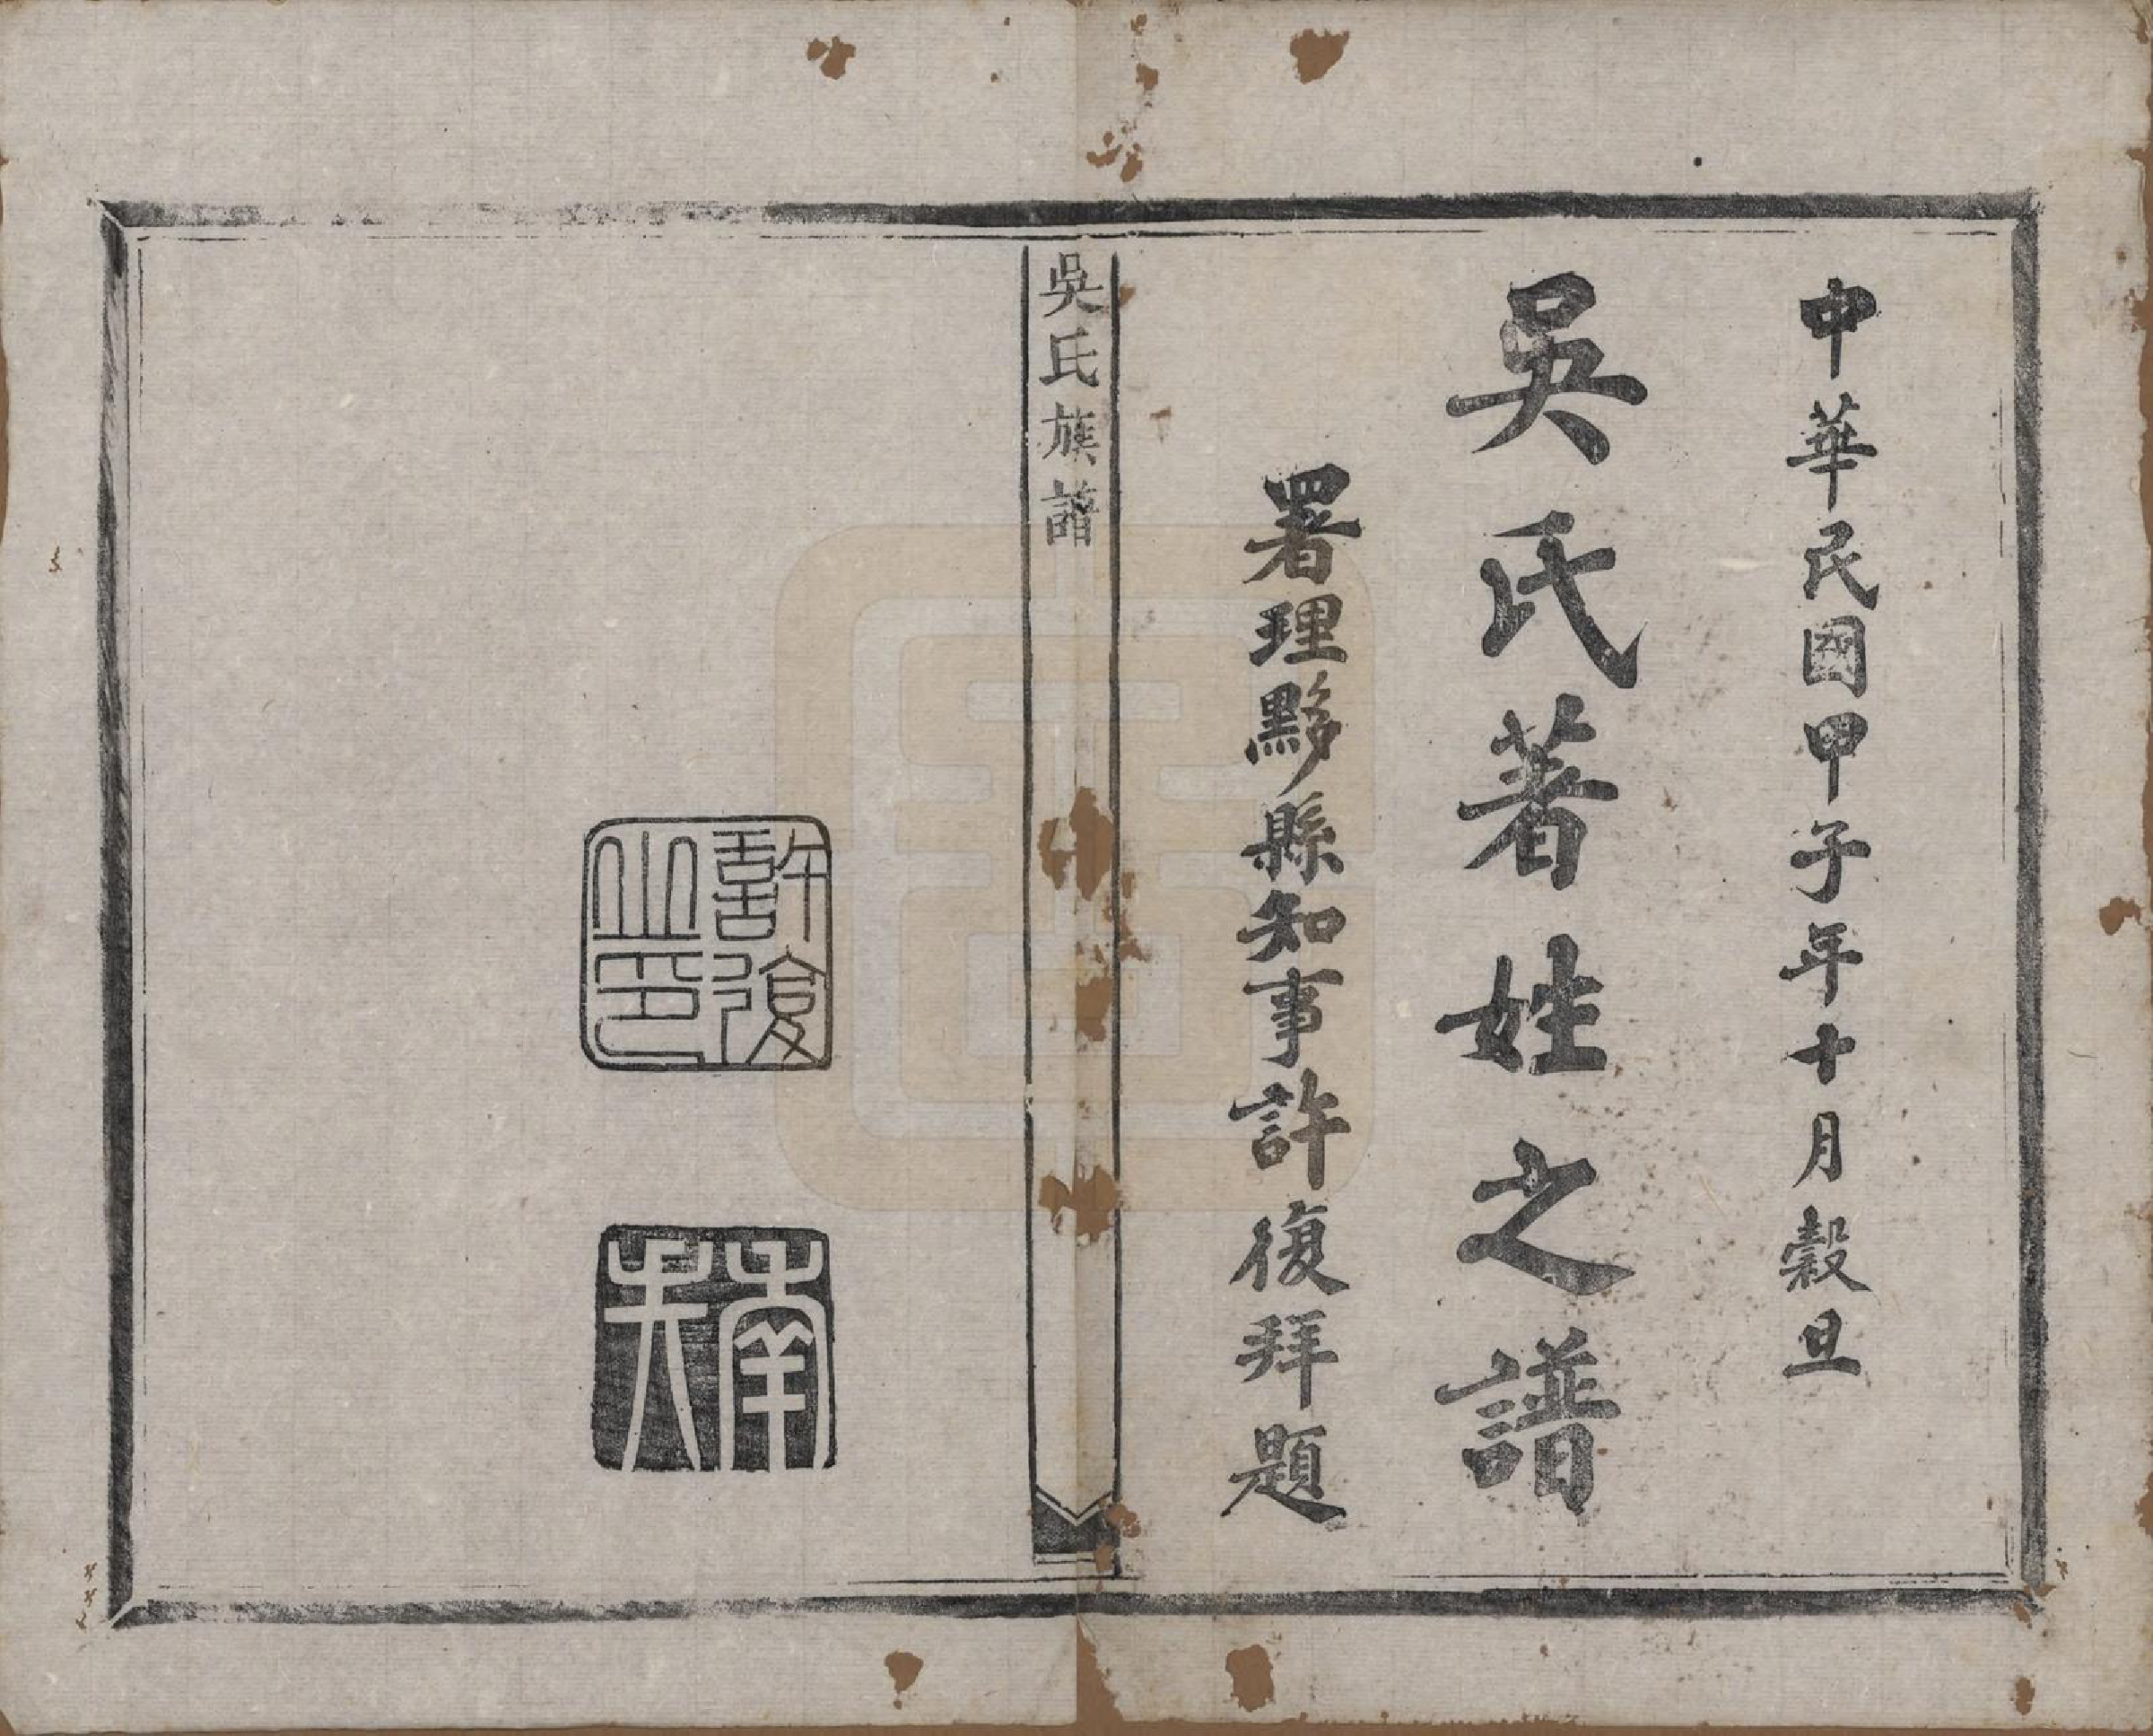 中華民國甲子年十月穀旦
吳氏著姓之譜
署理黟縣知事許復拜題
吳氏族譜
許復之印